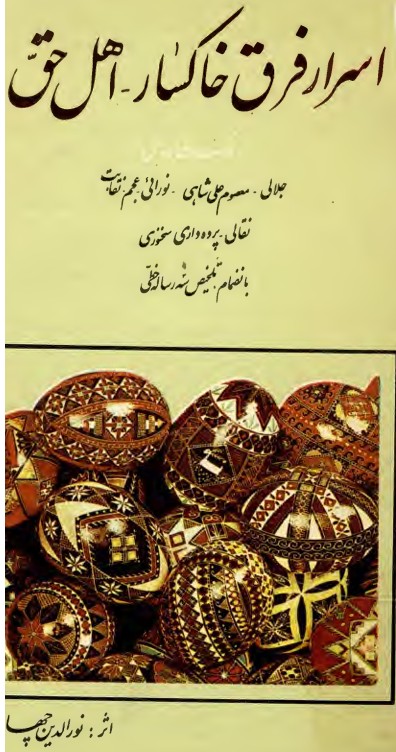 اسرار فرق خاکسار - اهل حقّ
جلالی - معصوم علی شاهی - نورائی - عجم - نقابت
نقالی - پرده داری سخنوری
بانضمام تلخیص سه رساله خطّی
اثر : نورالدین چها